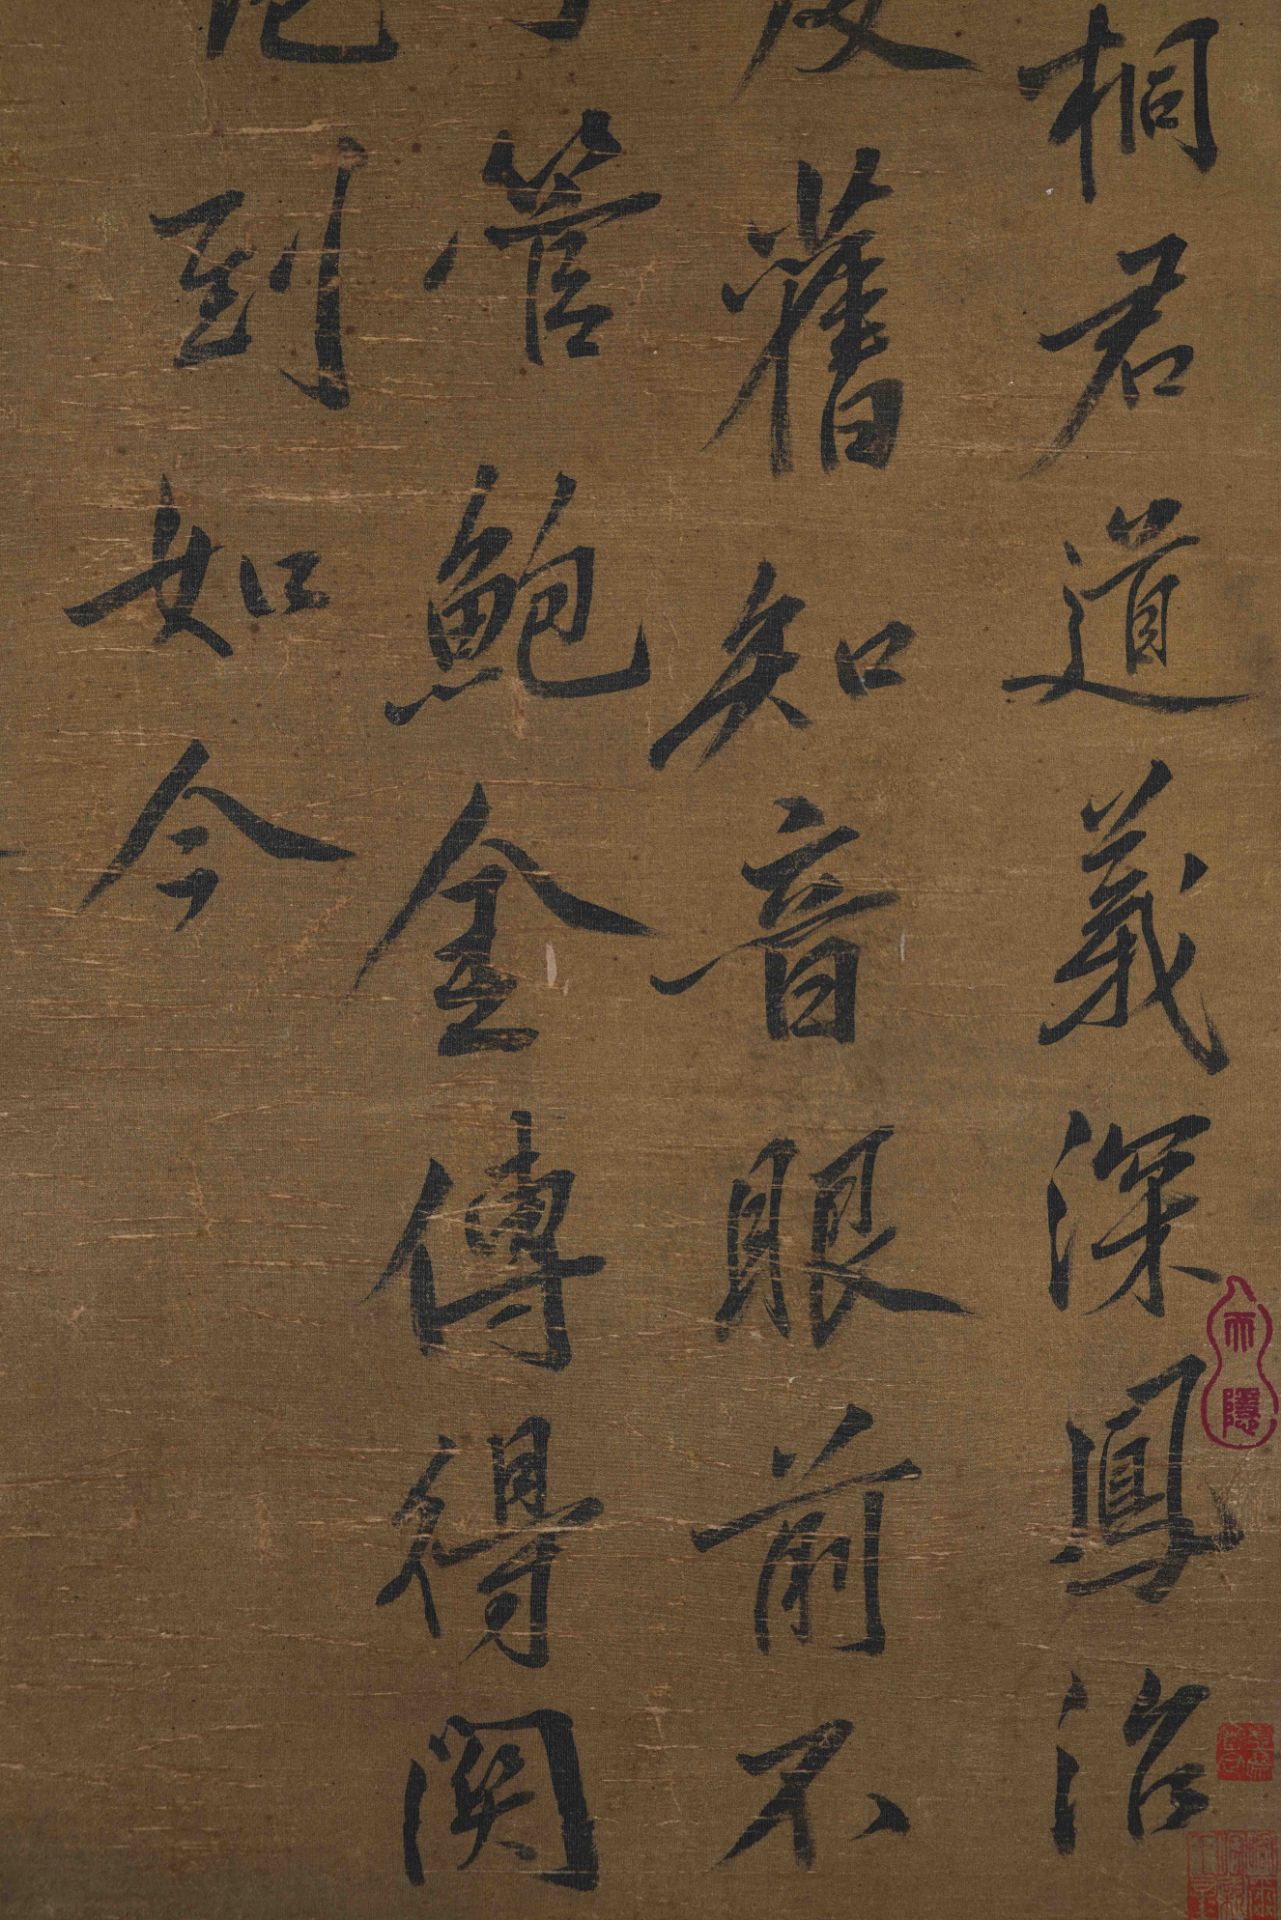 桐君道義深鳳沼
舊知音眼前不
管鮑金傳得闕
到如今
而隱